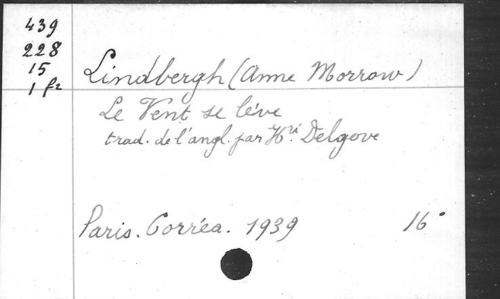 439
228
15
1 fr
Lindbergh (Anne Morrow)
Le Vent se lève
trad. de l'angl. par Hri Delgove
Paris. Corrêa. 1939 16°